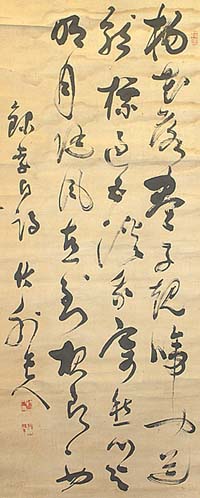 楊花落盡子規啼聞道
龍標過五溪我寄愁心與
明月隨風直到夜郎西
録李白詩